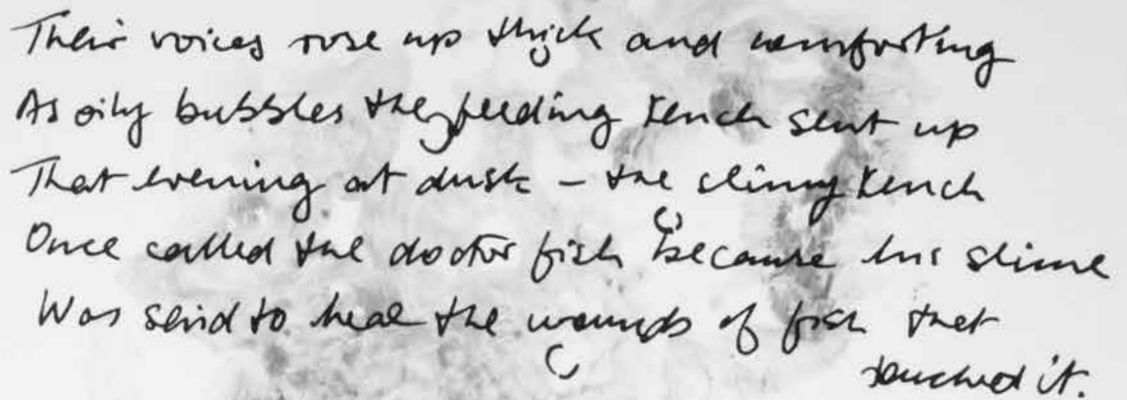 Their voices rose up thick and comforting
As oily bubbles the feeding tench sent up
That evening at dusk – the slimy tench
Once called the doctor fish because his slime
Was said to heal the wounds of fish that
touched it.